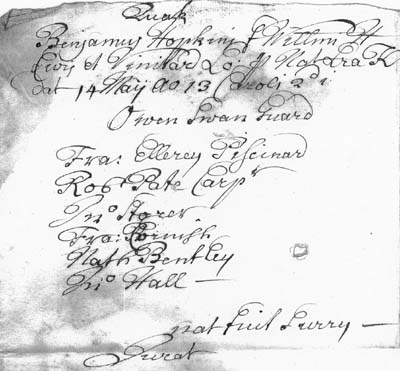 Benjamin Hopkins f Willmi H
Civis et Vinitar Lo: p Nat
dat 14 May Ao 13 Caroli 2di
Owen Swan Guard
Fra: Ellerey Piscinar
Robt Pate Carpr
Jno Storer
Fra: Cornish
Nath Bentley
Jno Hall —
nat fuit Surry —
Jurat